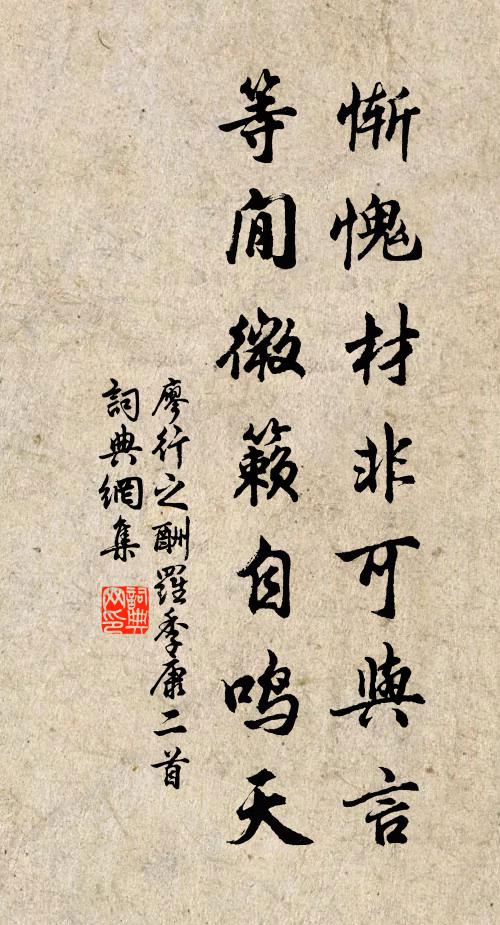 慚愧材非可與言
等閒微籟自鳴天
廖行之酬羅季康二首
詞典網集
詞典
网印